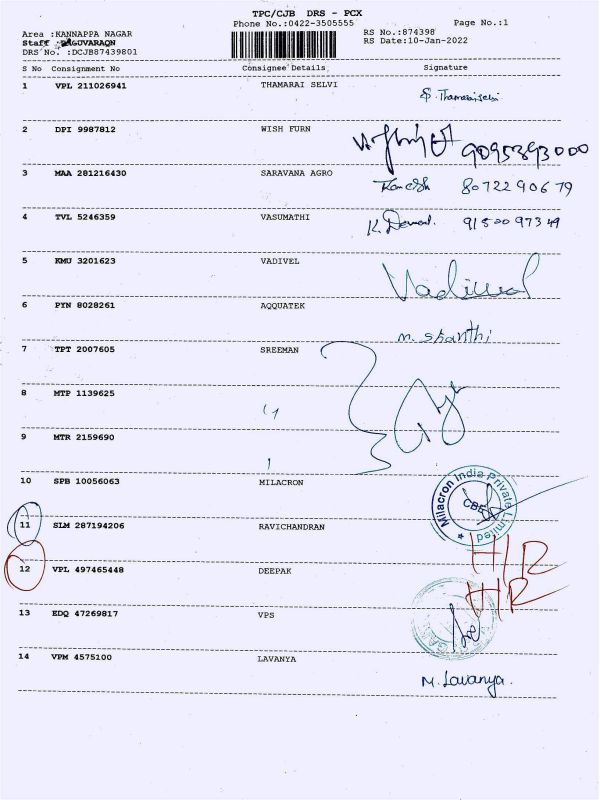 TPC/CJB DRS - PCX
Phone No.:0422-3505555
Page No.:1
Area :KANNAPPA NAGAR
RS No.:874398
Staff :RAGUVARAQN
RS Date:10-Jan-2022
DRS No. :DCJB87439801
S No Consignment No Consignee Details Signature
1 VPL 211026941 THAMARAI SELVI S. Thamaraiselvi
2 DPI 9987812 WISH FURN 9095393000
3 MAA 281216430 SARAVANA AGRO Ramesh 8072290679
4 TVL 5246359 VASUMATHI 9150097349
5 KMU 3201623 VADIVEL Vadivel
6 PYN 8028261 AQQUATEK m. Shanthi
7 TPT 2007605 SREEMAN
8 MTP 1139625 ''
9 MTR 2159690
10 SPB 10056063 MILACRON Milacron India Private Limited CBE
11 SLM 287194206 RAVICHANDRAN H/R
12 VPL 497465448 DEEPAK H/R
13 EDQ 47269817 VPS
14 VPM 4575100 LAVANYA M. Lavanya.